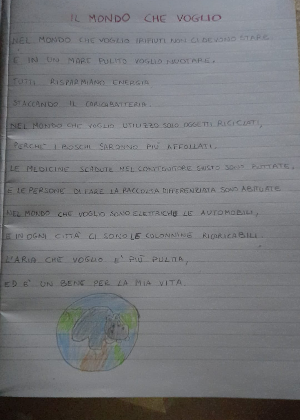 IL MONDO CHE VOGLIO
NEL MONDO CHE VOGLIO I RIFIUTI NON CI DEVONO STARE
E IN UN MARE PULITO VOGLIO NUOTARE.
TUTTI RISPARMIANO ENERGIA
STACCANDO IL CARICABATTERIA.
NEL MONDO CHE VOGLIO UTILIZZO SOLO OGGETTI RICICLATI,
PERCHÉ I BOSCHI SARANNO PIÙ AFFOLLATI,
LE MEDICINE SCADUTE NEL CONTENITORE GIUSTO SONO BUTTATE,
E LE PERSONE DI FARE LA RACCOLTA DIFFERENZIATA SONO ABITUATE.
NEL MONDO CHE VOGLIO SONO ELETTRICHE LE AUTOMOBILI,
E IN OGNI CITTÀ CI SONO LE COLONNINE RICARICABILI.
L'ARIA CHE VOGLIO È PIÙ PULITA,
ED È UN BENE PER LA MIA VITA.